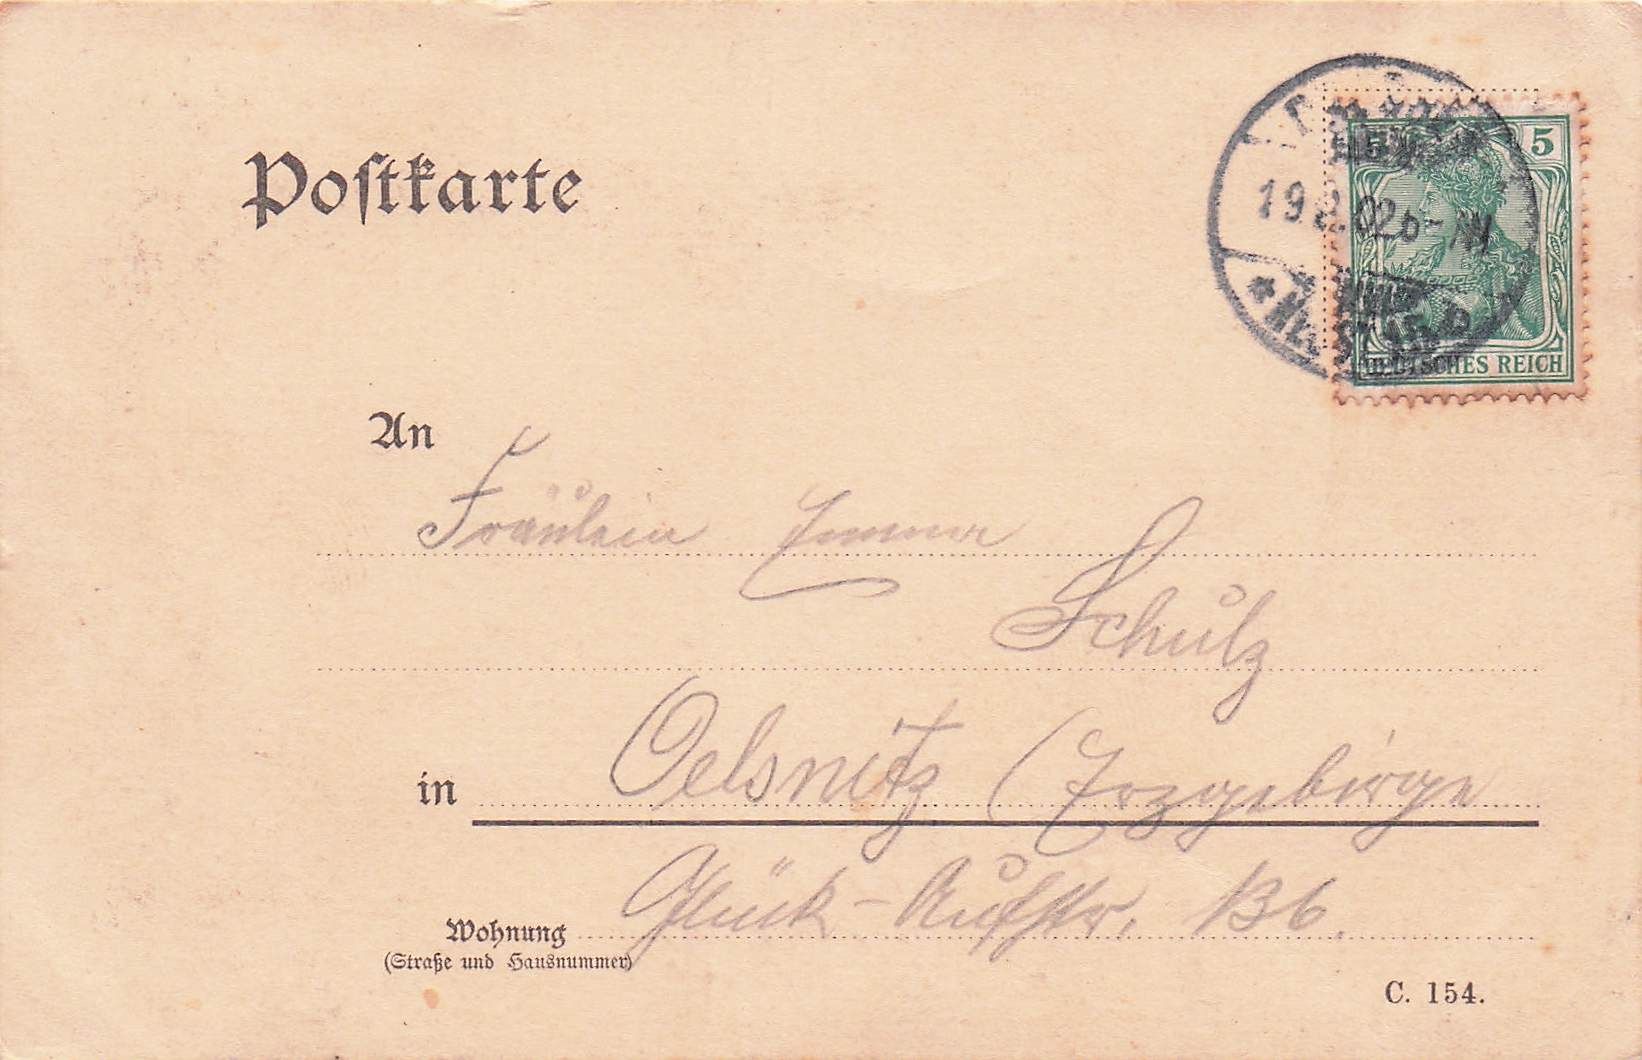 Postkarte
5
19.2.02 6-7N
DEUTSCHES REICH
An
Fräulein Emma
Schulz
in Oelsnitz (Erzgebirge
Glück-Aufstr.
Wohnung
(Straße und Hausnummer)
C. 154.